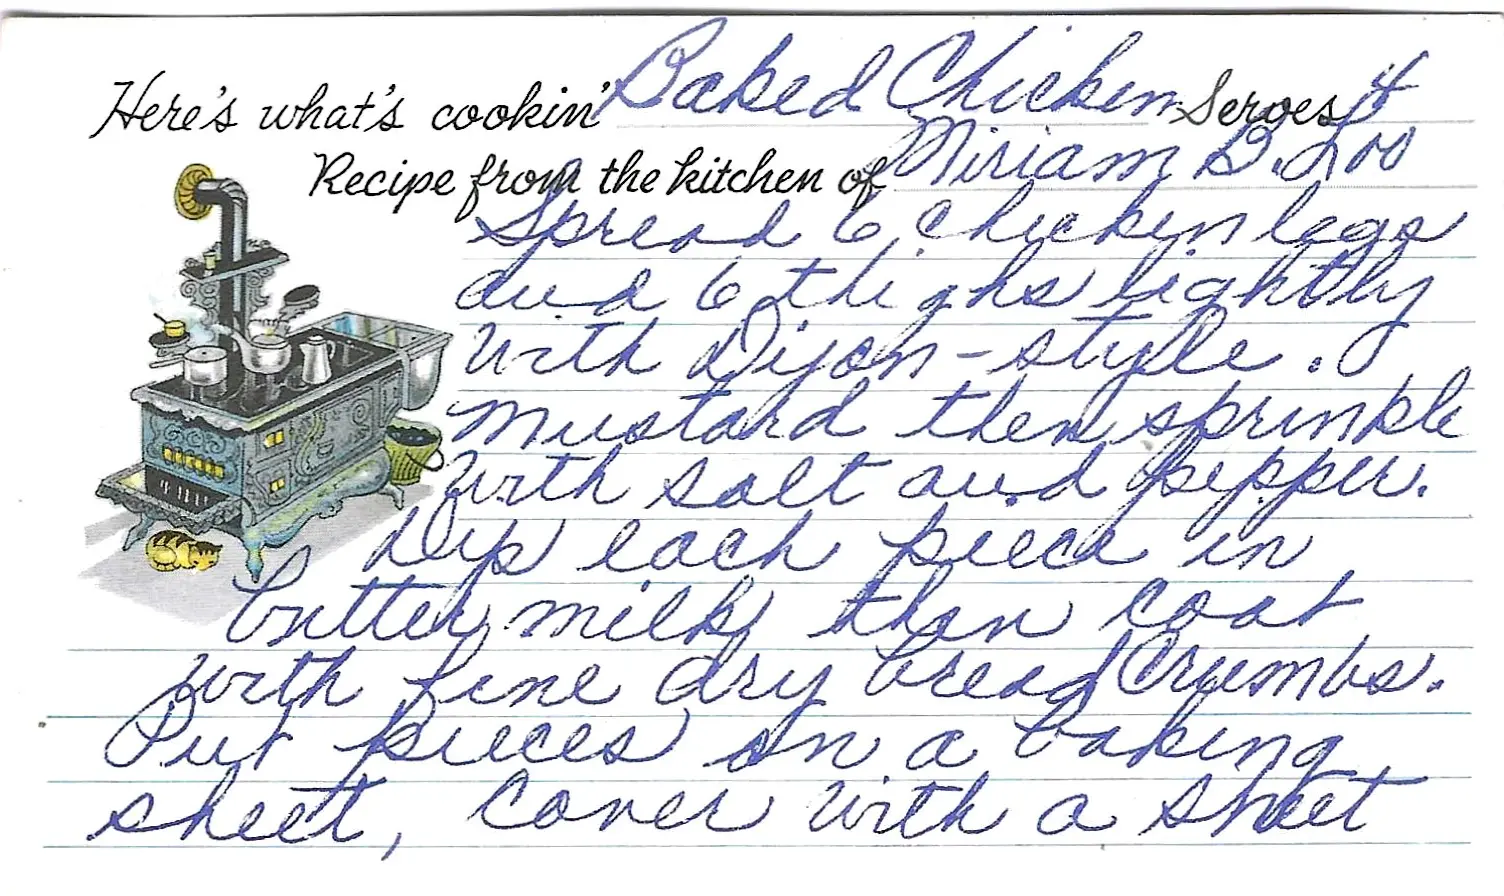 Here's what's cookin' Baked Chicken Serves 4
Recipe from the kitchen of Miriam B. Loo
Spread 6 chicken legs
and 6 thighs lightly
with Dijon-style.
mustard then sprinkle
with salt and pepper.
Dip each piece in
buttermilk then coat
with fine dry bread crumbs.
Put pieces on a baking
sheet, cover with a sheet